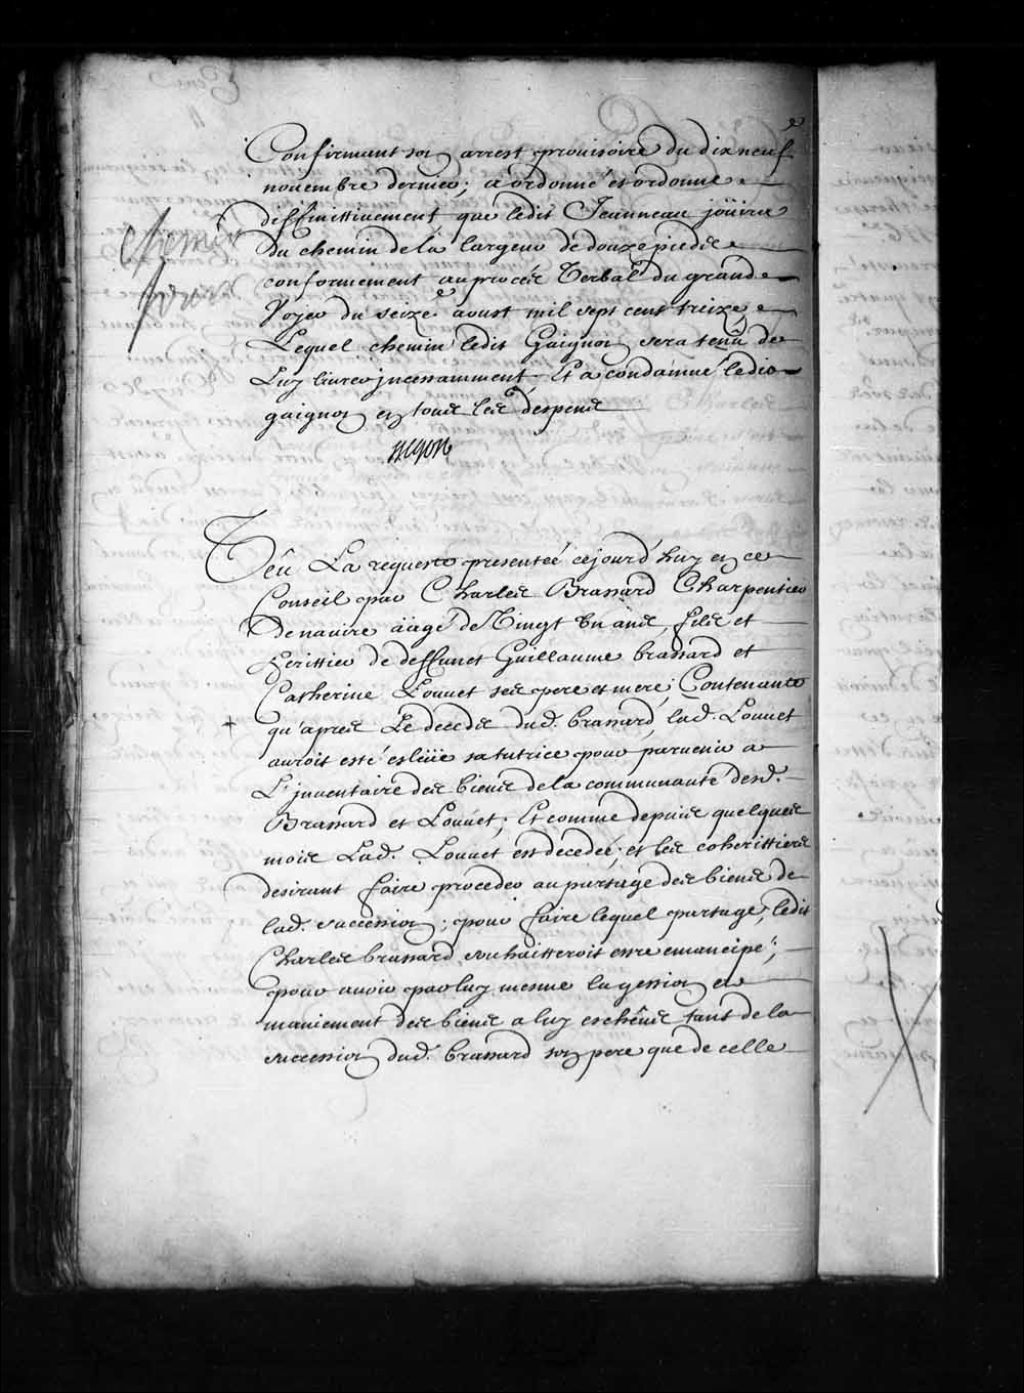 Confirmant son arrest provisoire du dix neuf
novembre dernier; a ordonné et ordonne
deffinittivement que ledit Jeanneau joüira
du chemin de la largeur de douze pieds
chemin
conformement au procés Verbal du grand
Voyer du seize aoust mil sept cent treize,
Lequel chemin ledit Gaignon sera tenû de
Luy livrer jncessamment, Et a condamné ledit
gaignon en tous les despens
Begon
Veû La requeste presenteé cejourd'huy en ce
Conseil par Charles Brassard Charpentier
De navire äagé de Vingt un ans, fils et
herittier de deffunct Guillaume brassard et
Catherine Louuet ses pere et mere; Contenante
qu'aprés Le decéds dud. brassard, lad. Louuet
auroit esté esleüe sa tutrice pour parvenir a
L'jnventaire des biens de la communauté desd.
Brassard et Louuet; Et comme depuis quelques
mois Lad. Louuet est decedeé; et les coherittiers
desirant faire proceder au partage des biens de
lad. succession; pour faire lequel partage, ledit
Charles brassard souhaitteroit estre emancipé;
pour avoir par luy mesme la gestion et
maniement des biens a luy escheûs tant de la
succession dud. brassard son pere que de celle